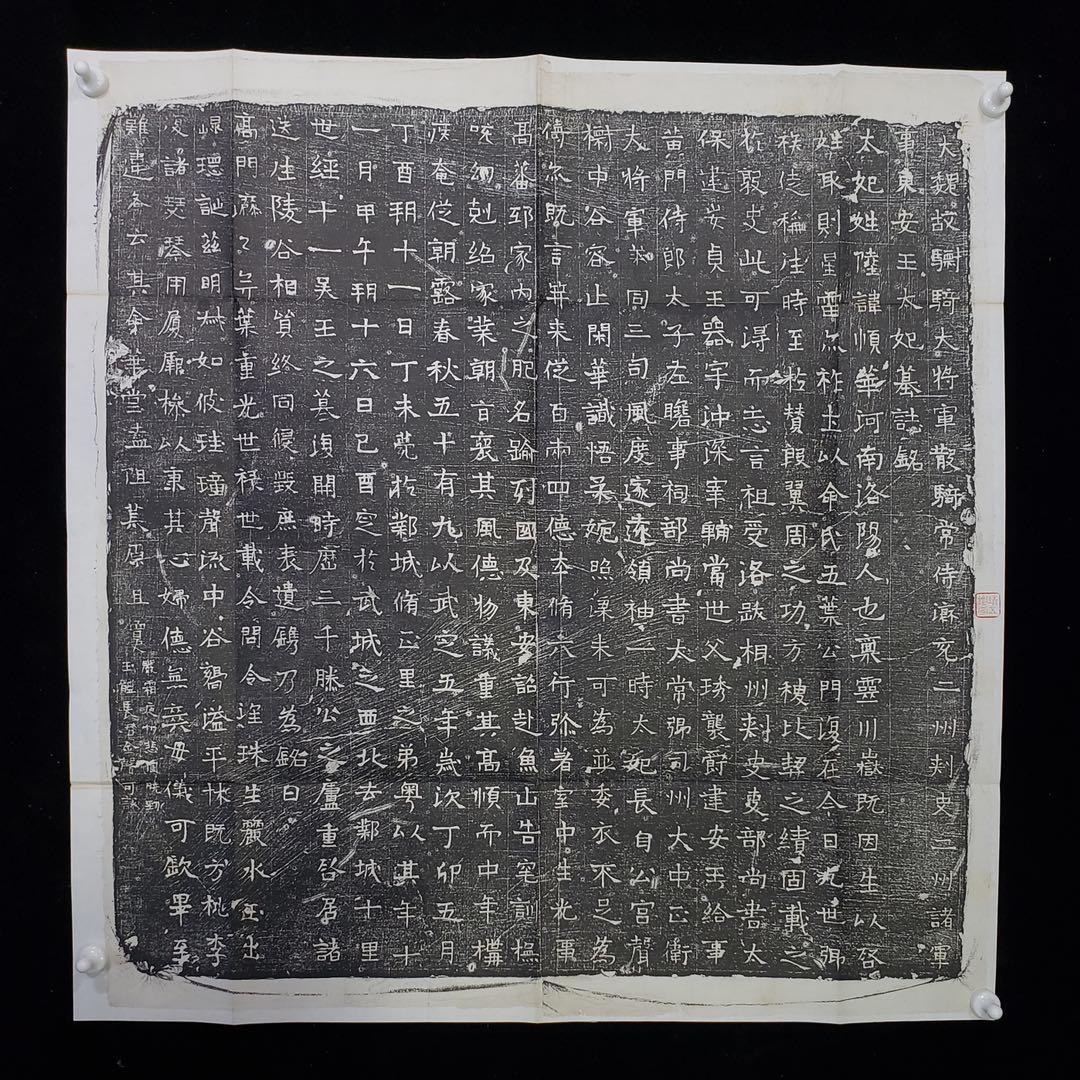 大魏故驃騎大將軍散騎常侍濟兖二州刺史二州諸軍
事東安王太妃墓誌銘
太妃姓陸諱順華河南洛陽人也稟靈川嶽既因生以啓
姓取則星雷亦祚土以命氏五葉公門復在今日九世卿
族徒稱往時至於贊殷翼周之功方稷比契之績固載之
於製史此可得而忘言祖受洛跋相州刺史吏部尚書太
保建安貞王器宇沖深宰輔當世父琇襲爵建安王給事
黃門侍郎太子左瞻事祠部尚書太常卿司州大中正衛
大將軍 同三司風度邃遠領袖一時太妃長自公宮聲
櫛中谷容止閑華識悟柔婉照渠未可為並委衣不足為
傳 既言 來從百兩四德本脩六行弥著室中生光事
高蕃邪家內之肥名踰列國及東安詔赴魚山告窆訓撫
咳幼剋紹家業朝音襄其風德物議重其高順而中年構
疾奄從朝露春秋五十有九以武定五年歲次丁卯五月
丁酉朔十一日丁未薨於鄴城脩正里之弟粵以其年十
一月甲午朔十六日己酉窆於武城之西北去鄴城十里
世經十一吴王之墓復開時歷三千滕公之廬重啓居諸
迭往陵谷相貿終同 毀庶表遺鐫乃為銘曰
高門 弈葉重光世祿世載令問令望珠生麗水玉出
崐 誕茲明 如彼珪璋聲流中谷譽溢平林既方桃李
復諸瑟琴用 厥 以秉其心婦德無 母儀可欽畢至
難違 云其 華堂 阻 原且